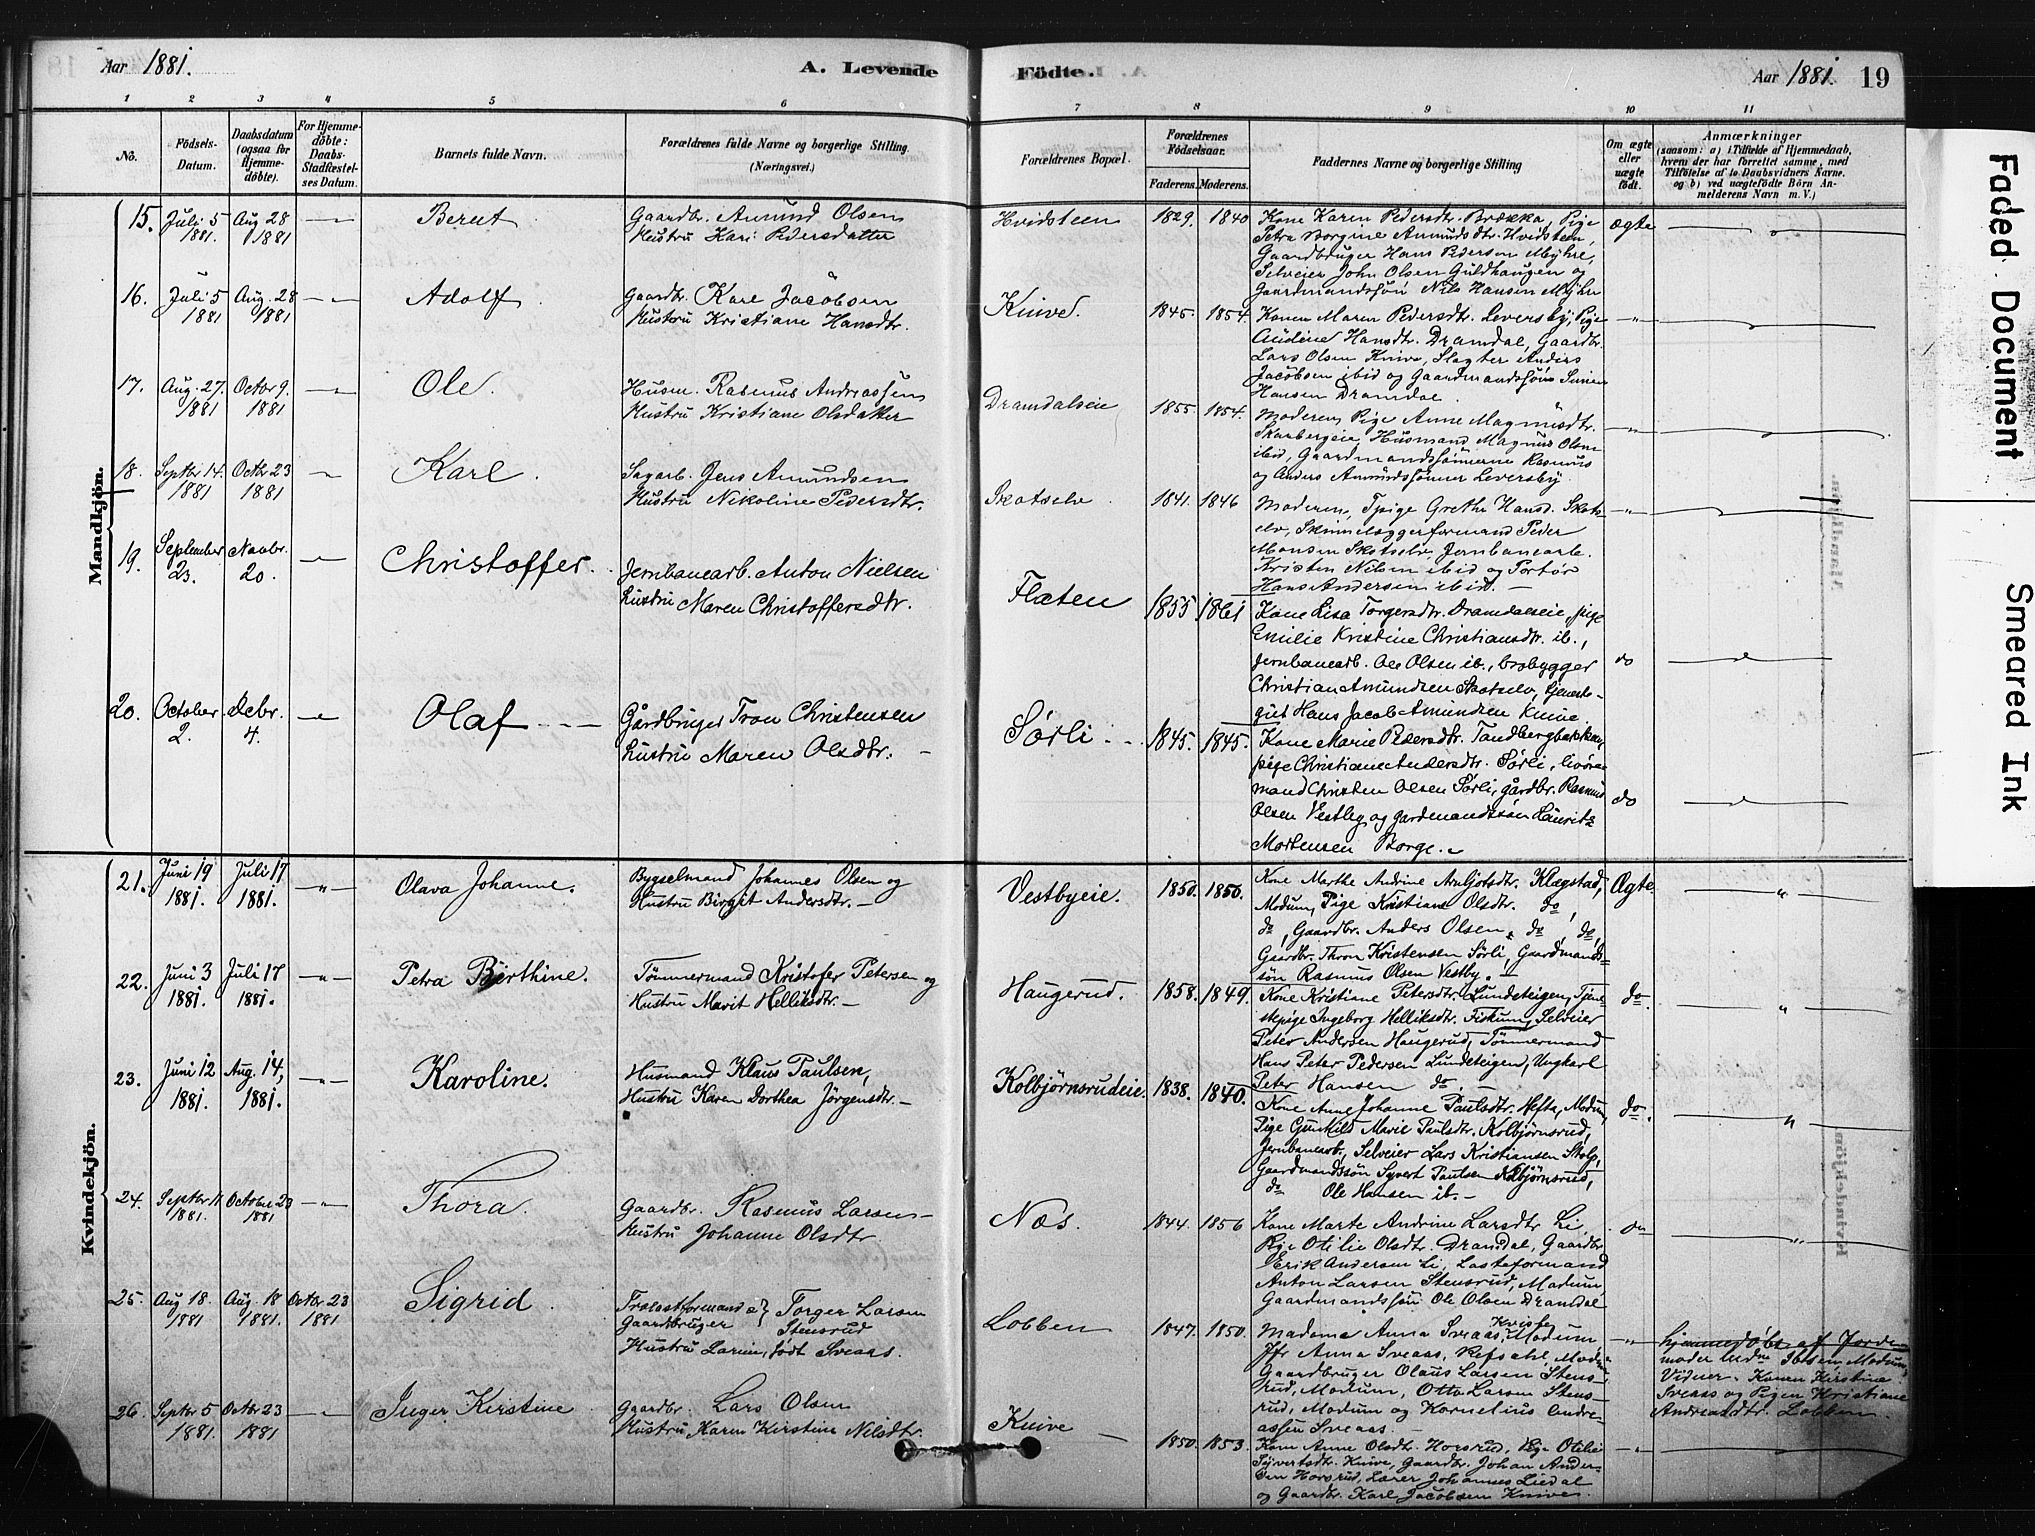 Aar 1881. A. Levende Fødte. Aar 1881. 19
1 2 3 4 5 6 7 8 9 10 11
No. Födsels-Datum. Daabsdatum (ogsaa for Hjemmedöbte). For Hjemmedöbte: Daabs-Stadfestelses Datum. Barnets fulde Navn. Forældrenes fulde Navne og borgerlige Stilling. (Næringsvei.) Forældrenes Bopæl. Forældrenes Födselsaar. Faderens. Moderens. Faddernes Navne og borgerlige Stilling Om ægte eller uægte födt. Anmærkninger (saasom: a) i Tilfælde af Hjemmedaab, hvem der har forrettet samme, med Tilföielse af to Daabsvidners Navne, og b) ved uægtefödte Börn Anmelderens Navn m. V.)
Mandkjön.
15. Juli 5 1881. Aug 28 1881 Berut
Gaardbr. Amund Olsen
Hustru Kari Pedersdatter
Hvidsteen 1829. 1840
Kone Karen Pedersdtr. Brække, Pige
Petra Borgine Amundsdtr. Hvidsteen,
Gaardbruger Hans Pedersen Myhre,
Selveier John Olsen Guldhaugen og
Gaardmandssøn Nils Hansen Myhre
ægte
16. Juli 5 1881 Aug. 28 1881 Adolf
Gaardbr. Karl Jacobsen
Hustru Kristiane Hansdtr.
Knive. 1845. 1854.
Konen Maren Pedersdtr. Leversby, Pige
Audine Hansdtr. Dramdal, Gaardbr.
Lars Olsen Knive, Slagter Anders
Jacobsen ibid og Gaardmandssøn Simen
Hansen Dramdal.
17. Aug. 27. 1881 Octbr 9. 1881 Ole.
Husm. Rasmus Andreassen
Hustru Kristiane Olsdatter
Dramdalseie 1855. 1854.
Moderen, Pige Anne Magnusdtr.
Skarbergeie, Husmand Magnus Olsen
ibid, Gaardmandssønnerne Rasmus
og Anders Amundssønner Leversby.
18. Septbr 14. 1881 Octbr 23 1881 Karl.
Sagarb. Jens Amundsen
Hustru Nikoline Pedersdtr.
Skotselv 1841. 1846
Moderen, Tpige Grethe Hansd. Skots-
elv, Skinnelæggerformand Peder
Monsen Skotselv, Jernbanearb.
Kristen Nilsen ibid og Portør
Hans Andersen ibid.
19. September 23. Novbr. 20. Christoffer.
Jernbanearb. Anton Nielsen
hustru Maren Christoffersdtr.
Flaten 1855 1861
Kone Lisa Torgersdtr. Dramdalseie, pige
Emilie Kristine Christiansdtr. ib.,
jernbanearb. Ole Olsen ib., brobygger
Christian Amundsen Skotselv, tjeneste-
gut Hans Jacob Amundsen Knive.
do
20. October 2. Decbr. 4. Olaf
Gårdbruger Tron Christensen
hustru Maren Olsdtr.
Sørli 1845. 1845.
Kone Marie Pedersdtr. Tandbergbakken,
pige Christiane Andersdtr. Sørli, livøre-
mand Christen Olsen Sørli, gårdbr. Rasmus
Olsen Vestby og gardmandssøn Laurits
Mortensen Borge.
do
Kvindekjön.
21. Juni 19 1881. Juli 17 1881. Olava Johanne.
Bygselmand Johannes Olsen og
Hustru Birgit Andersdtr.
Vestbyeie. 1850. 1850.
Kone Marthe Andrine Arnljotsdtr. Klægstad,
Modum, Pige Kristiane Olsdtr. do,
do, Gaardbr. Anders Olsen, do, do,
Gaardbr. Thron Kristensen Sørli, Gaardmands-
søn Rasmus Olsen Vestby.
Ægte
22. Juni 3 1881. Juli 17 1881. Petra Birthine.
Tømmermand Kristofer Petersen og
Hustru Marit Helliksdtr.
Haugerud. 1858. 1849.
Kone Kristiane Petersdtr. Lundeteigen, Tjene-
stepige Ingeborg Helliksdtr. Fiskum, Selveier
Peter Andersen Haugerud, Tømmermand
Hans Peter Pedersen Lundeteigen, Ungkarl
Peter Hansen do.
do.
23. Juni 12 1881. Aug. 14, 1881. Karoline.
Husmand Klaus Paulsen,
Hustru Karen Dorthea Jörgensdtr.
Kolbjørnsrudeie. 1838. 1840.
Kone Anne Johanne Paulsdtr. Hefte, Modum,
Pige Gunhild Marie Paulsdtr. Kolbjørnsrud,
Jernbanearb., Selveier Lars Kristiansen Skolp,
Gaardmandssøn Syvert Paulsen Kolbjørnsrud,
do Ole Hansen ib.
do.
24. Septbr 11 1881. October 23 1881 Thora.
Gaardbr. Rasmus Larsen
Hustru Johanne Olsdtr
Næs. 1844. 1856
Kone Marte Andrine Larsdtr Li,
Pige Otilie Olsdtr. Dramdal, Gaardbr
Erik Andersen Li, Lasteformand
Anton Larsen Stensrud, Modum,
Gaardmandssøn Ole Olsen Dramdal
do
25. Aug 18. 1881 Aug. 18 1881. Octbr. 23 1881 Sigrid.
Gaardbruger Torger Larsen
Stensrud
Hustru Larine, født Sveaas.
Lobben 1847. 1850.
Madame Anna Sveaas, Modum
Jfr Anna Sveaas, Refsahl, Modum,
Gaardbruger Olaus Larsen Stens-
rud, Modum, Otto Larsen Stens-
rud, Modum og Kornelius Andre-
assen Sveaas.
hjemmedøbt af Jorde-
moder Ibsen, Modum,
Vidner. Konen Kirstine
Sveaas og Pigen Kristiane
Andreasdtr. Lobben.
26. Septbr 5 1881. Octbr 23 1881 Inger Kirstine
Gaardbr. Lars Olsen
Hustru Karen Kirstine Nilsdtr.
Knive 1850. 1853.
Kone Anne Olsdtr. Horsrud, Pige Otilie
Syvertsdtr. Knive, Gaardbr. Johan Ander-
sen Horsrud, Lærer Johannes Liedal
og Gaardbr. Karl Jacobsen Knive.
Faded Document
Smeared Ink